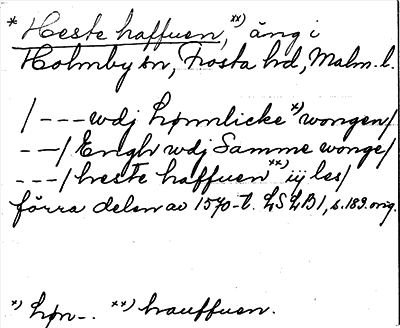 * Heste haffuen, **) äng i
Holmby sn, Frosta hd, Malm. l.
/ --- wdj hømlicke *) wongen /
-- / Engh wdj Samme wonge /
--- / heste haffuen **) iij les /
förra delen av 1570-t. LSLB1, s. 183. orig.
*) høn-. **) hauffuen.